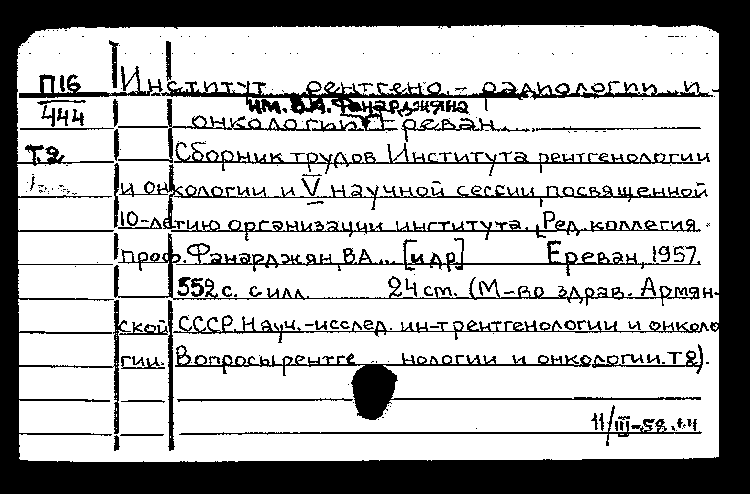 П16 Институт рентгено-радиологии и
444 им. В.А. Фанарджяна
онкологии Ереван.
Т.2 Сборник трудов Института рентгенологии
и онкологии и V научной сессии, посвященной
10-летию организации института. [Ред. коллегия
проф. Фанарджян, В.А... [и др] Ереван, 1957.
552 с. с илл. 24 cm. (М-во здрав. Армян-
ской ССР. Науч.-исслед. ин-т рентгенологии и онколо
гии. Вопросы рентге нологии и онкологии. Т 2).
11/III-58.